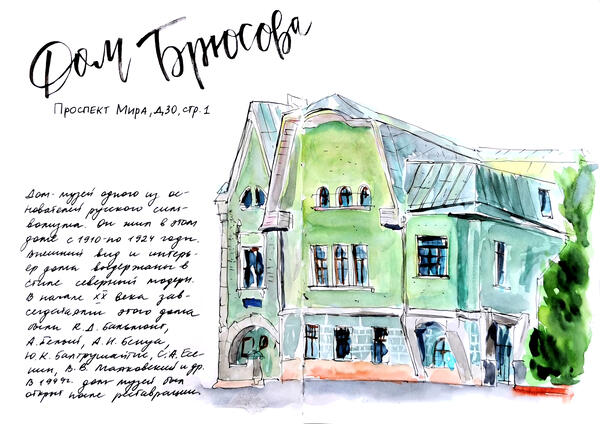 Дом Брюсова
Проспект Мира, д.30, стр.1
Дом-музей одного из ос-
нователей русского симво-
волизма. Он жил в этом
доме с 1910 по 1924 годы.
Внешний вид и интерь-
ер дома выдержаны в
стиле северной модерн.
В начале XX века зав-
сегдатаями этого дома
были К.Д. Бальмонт,
А. Белый, А.Н. Бенуа,
Ю.К. Балтрушайтис, С.А. Есе-
нин, В.В. Маяковский и др.
В 1999г. дом-музей был
открыт после реставрации.